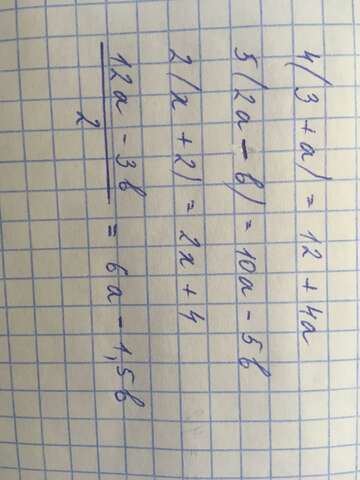 4(3 + a) = 12 + 4a
5(2a - b) = 10a - 5b
2(x + 2) = 2x + 4
12a - 3b / 2 = 6a - 1,5b